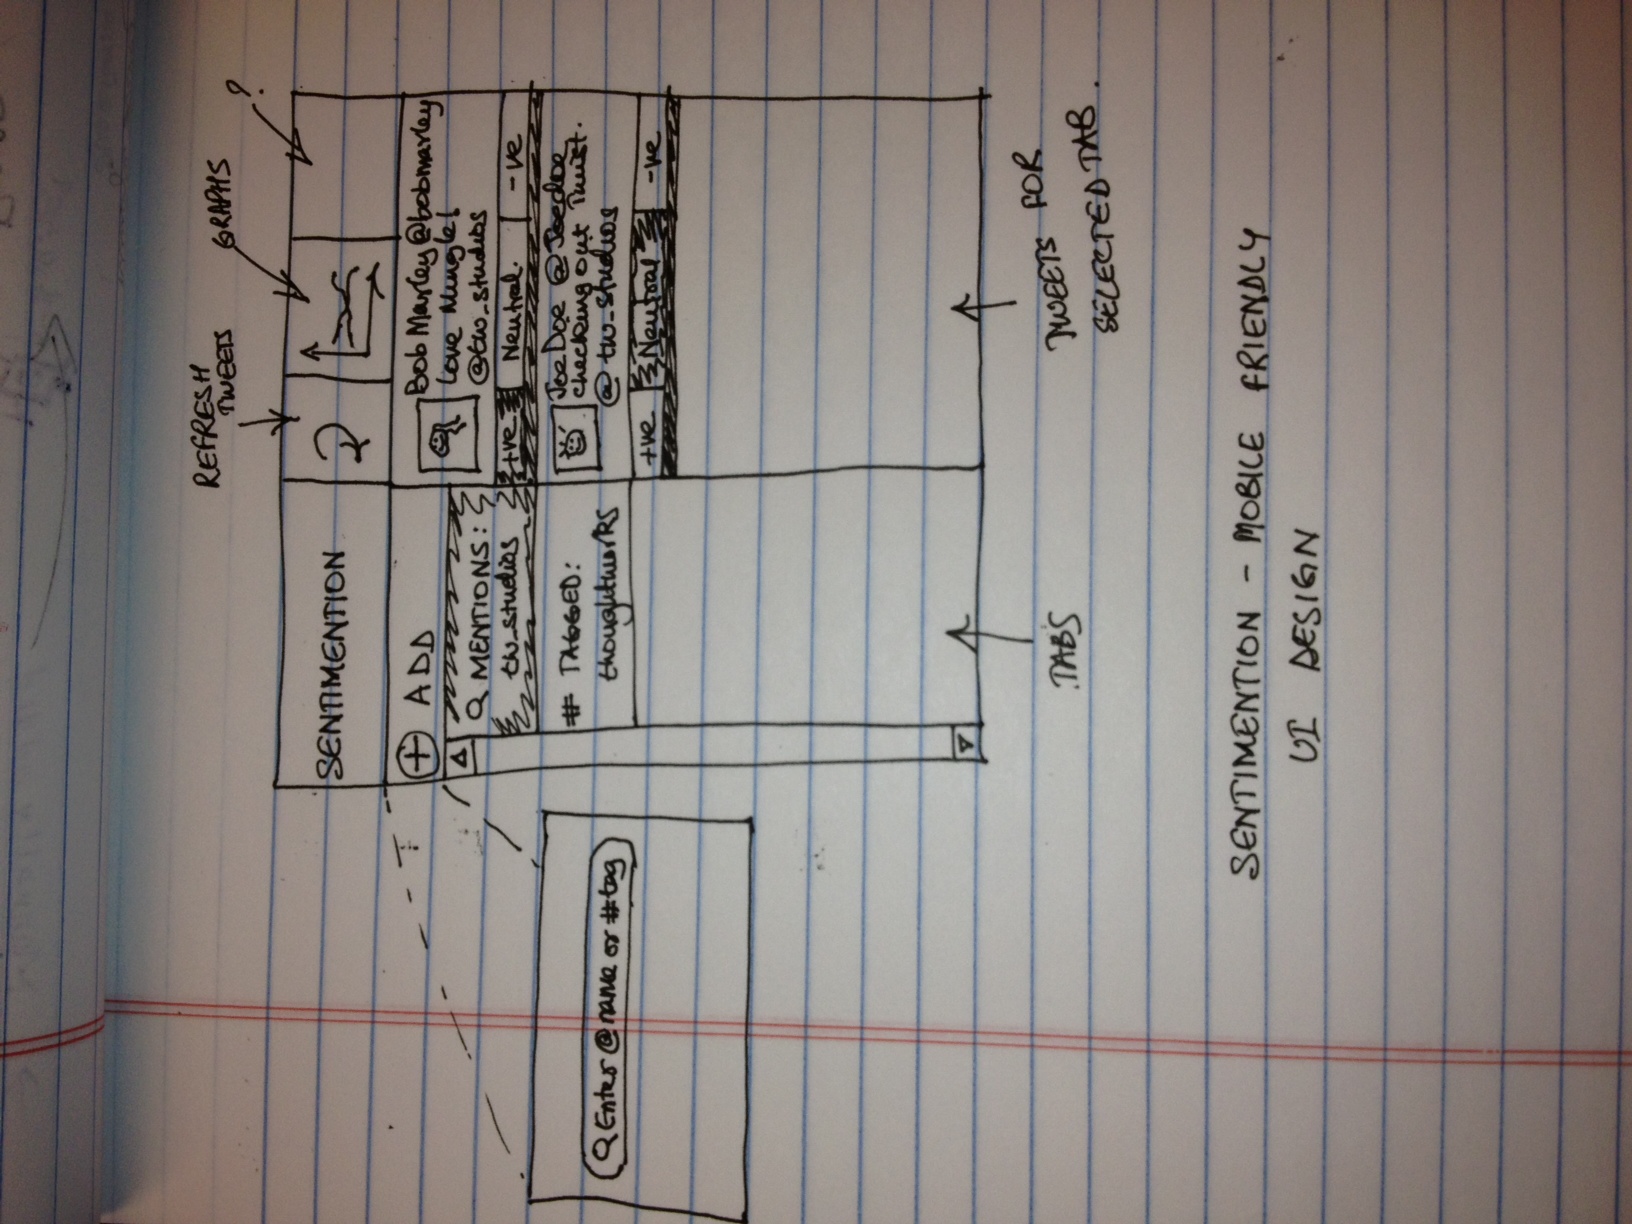 REFRESH
TWEETS
GRAPHS
?
SENTIMENTION
+ ADD
MENTIONS:
tw_studios
# TAGGED:
thoughtworks
Enter @name or #tag
Bob Marley @bobmarley
Love Mingle!
@tw_studios
+ve Neutral. -ve
Joe Doe @Joedoe
checking out Twist.
@tw_studios
+ve Neutral -ve
TABS
TWEETS FOR
SELECTED TAB.
SENTIMENTION - MOBILE FRIENDLY
UI DESIGN